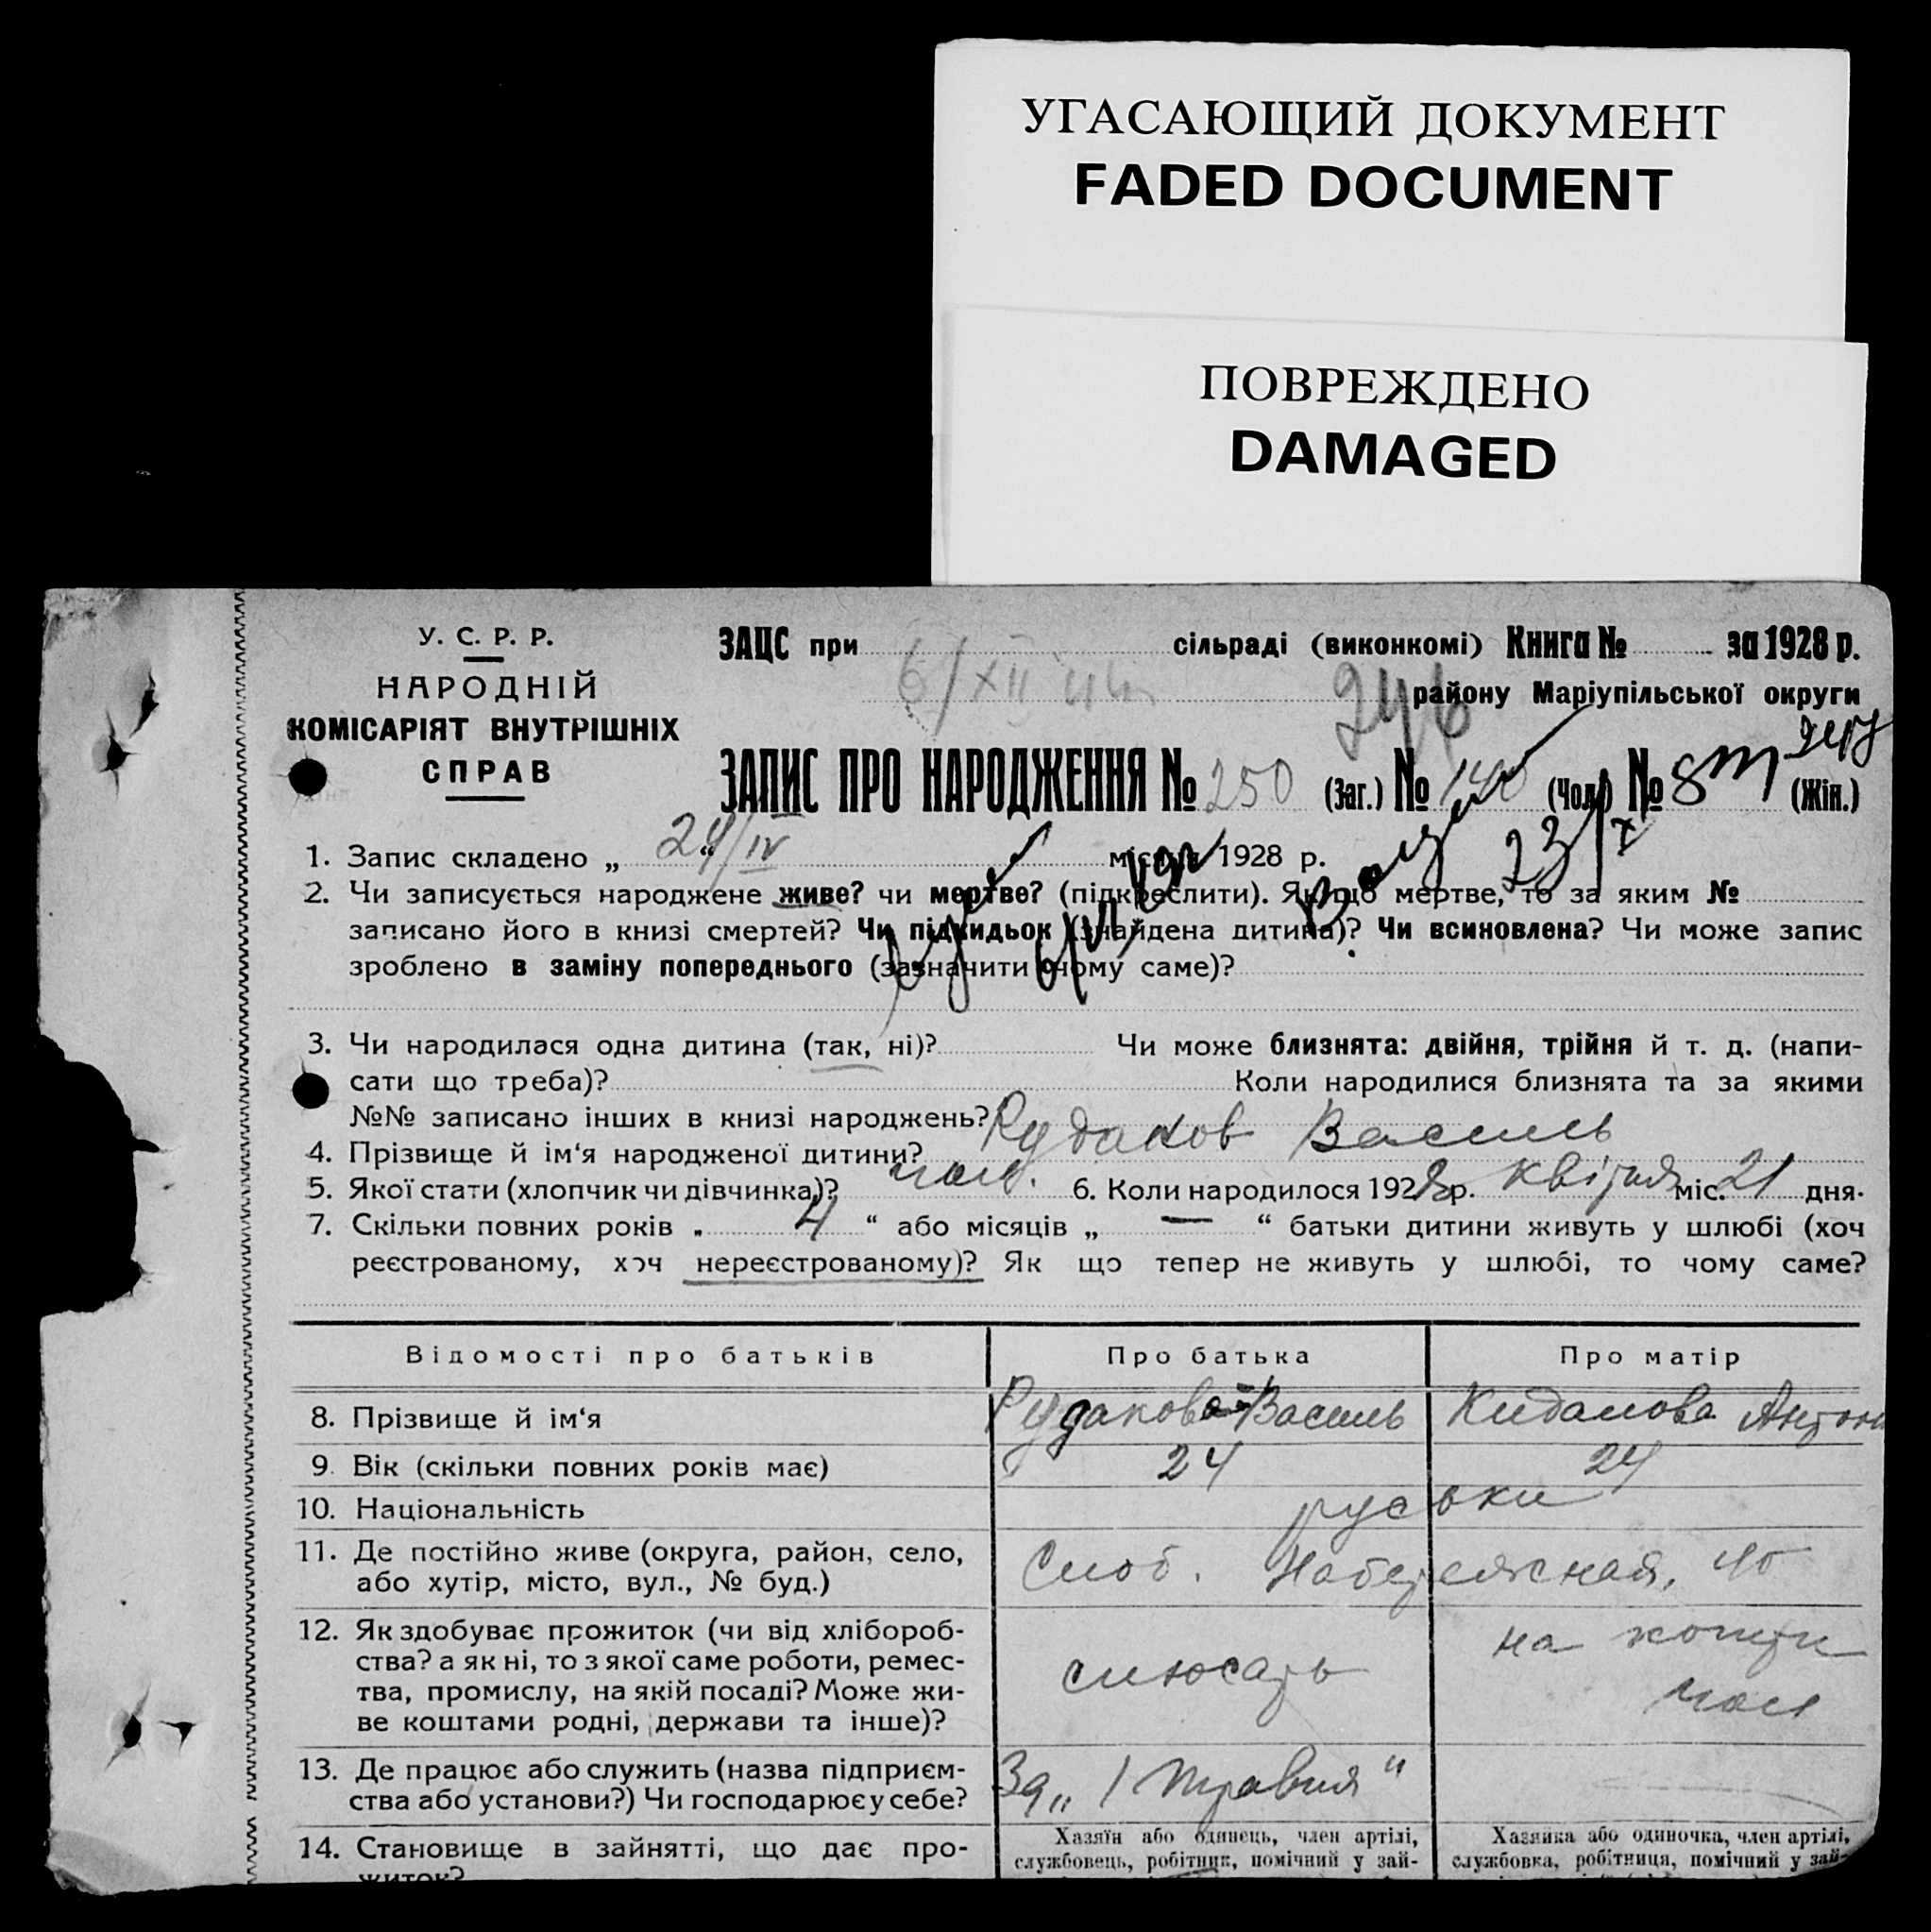 УГАСАЮЩИЙ ДОКУМЕНТ
FADED DOCUMENT
ПОВРЕЖДЕНО
DAMAGED
У. С. Р. Р.
НАРОДНІЙ
КОМІСАРІЯТ ВНУТРІШНІХ
СПРАВ
ЗАЦС при сільраді (виконкомі) Книга № за 1928 р.
6/XII
246 району Маріупільської округи
ЗАПИС ПРО НАРОДЖЕННЯ № 250 (Заг.) № 140 (Чол.) № (Жін.)
23/X
1. Запис складено „ 24/IV “ місяця 1928 р.
2. Чи записується народжене живе? чи мертве? (підкреслити). Якщо мертве, то за яким №
записано його в книзі смертей? Чи підкидьок (знайдена дитина)? Чи всиновлена? Чи може запис
зроблено в заміну попереднього (зазначити чому саме)?
3. Чи народилася одна дитина (так, ні)? Чи може близнята: двійня, трійня й т. д. (напи-
сати що треба)? Коли народилися близнята та за якими
№№ записано інших в книзі народжень?
4. Прізвище й ім‘я народженої дитини? Рудаков Василь
5. Якої стати (хлопчик чи дівчинка)? чол. 6. Коли народилося 1928 р. квітня міс. 21 дня.
7. Скільки повних років „ 4 “ або місяців „ — “ батьки дитини живуть у шлюбі (хоч
реєстрованому, хоч нереєстрованому)? Як що тепер не живуть у шлюбі, то чому саме?
Відомості про батьків Про батька Про матір
8. Прізвище й ім‘я Рудаков Василь Кидалова Антони
9. Вік (скільки повних років має) 24 24
10. Національність руські
11. Де постійно живе (округа, район, село, Слоб. Набережная, 40
або хутір, місто, вул., № буд.)
12. Як здобуває прожиток (чи від хлібороб-
ства? а як ні, то з якої саме роботи, ремес-
тва, промислу, на якій посаді? Може жи-
ве коштами родні, держави та інше)?
слюсарь
на кошти
чол
13. Де працює або служить (назва підприєм-
ства або установи?) Чи господарює у себе?
Зд „ 1 травня “
14. Становище в зайнятті, що дає про-
житок?
Хазяїн або одинець, член артілі,
службовець, робітник, помічний у зай-
Хазяйка або одиночка, член артілі,
службовка, робітниця, помічний у зай-